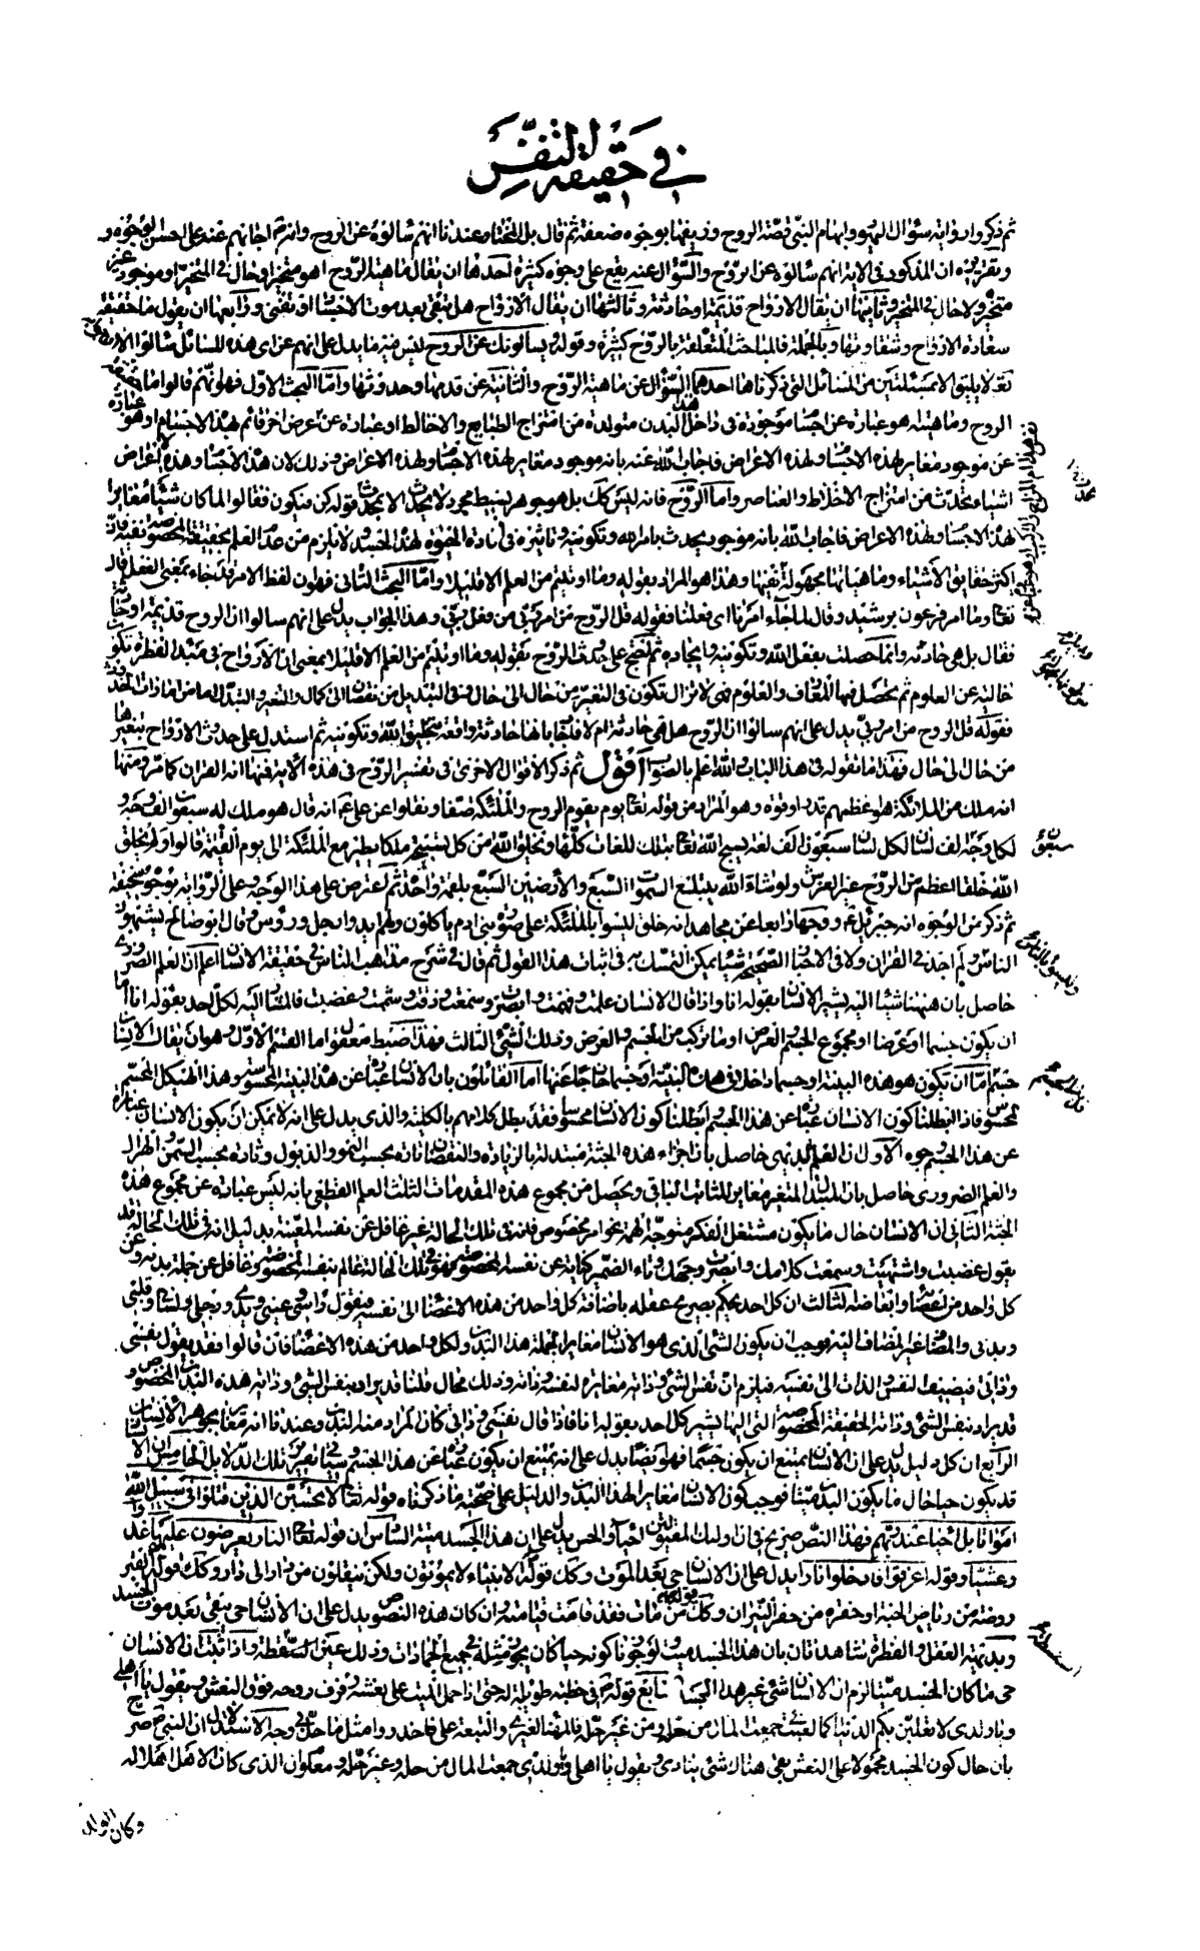 في حقيقة النفس
ثم ذكروا رواية سؤال اليهود وابهام النبي قصة الروح وزيفها بوجوه ضعيفة ثم قال بل المختار عندنا انهم سالوه عن الروح وانه اجابهم عنه على احسن الوجوه و
تقريره ان المذكور في الاية انهم سالوه عن الروح والسؤال عنه يقع على وجوه كثيرة احدها ان يقال ماهية الروح اهو متحيز او حال في المتحيز او موجود غير
متحيز ولا حال في المتحيز وثانيها ان يقال الارواح قديمة او حادثة وثالثها ان يقال الارواح هل تبقى بعد موت الاجساد او تفنى ورابعها ان يقول ما حقيقة
سعادة الارواح وشقاوتها وبالجملة فالمباحث المتعلقة بالروح كثيرة وقوله ويسالونك عن الروح ليس فيه ما يدل على انهم عن اى هذه المسائل سالوا الا
تعالى لا يليق الا بمسئلتين من المسائل التي ذكرناها احدهما السؤال عن ماهية الروح والثانية عن قدمها وحدوثها واما البحث الاول فهو انهم قالوا ما حقيقة
الروح وماهيته هو عبارة عن اجسام موجودة في داخل هذا البدن متولدة من امتزاج الطبايع والاخلاط او عبارة عن عرض اخر قائم بهذه الاجسام او هو عبارة
عن موجود مغاير لهذه الاجسام ولهذه الاعراض فاجاب الله عنه بانه موجود مغاير لهذه الاجسام ولهذه الاعراض وذلك لان هذه الاجسام وهذه الاعراض
اشياء تحدث من امتزاج الاخلاط والعناصر واما الروح فانه ليس كك بل هو جوهر بسيط مجرد لا يحدث الا بمحدث قوله كن فيكون فقالوا لما كان شيئا مغايرا
لهذه الاجسام ولهذه الاعراض فاجاب الله بانه موجود يحدث بامر الله وتكوينه وتاثيره في افادة الحيوة لهذا الجسد ولا يلزم من عدم العلم بحقيقته المخصوصة نفيه فان
اكثر حقايق الاشياء وماهياتها مجهولة وهذا هو المراد بقوله وما اوتيتم من العلم الا قليلا واما البحث الثاني فهو ان لفظ الامر قد جاء بمعنى الفعل قال
تعالى وما امر فرعون برشيد وقال لما جاء امرنا اى فعلنا فقوله قل الروح من امر ربي اى من فعل ربي وهذا الجواب يدل على انهم سالوا ان الروح قديمة او حادثة
فقال بل هي حادثة وانما حصلت بفعل الله وتكوينه وايجاده ثم احتج على حدوث الروح بقوله وما اوتيتم من العلم الا قليلا بمعنى ان الارواح في مبدء الفطرة تكون
خالية عن العلوم ثم يحصل فيها المعارف والعلوم فهي لا تزال تكون في التغير من حال الى حال وفي التبديل من نقصان الى كمال والتغير والتبدل من امارات الحدوث
فقوله قل الروح من امر ربي يدل على انهم سالوا ان الروح هل هي حادثة ام لا فاجاب بانها حادثة واقعة بتخليق الله وتكوينه ثم استدل على حدوث الارواح بتغيرها
من حال الى حال فهذا ما نقوله في هذا الباب والله اعلم بالصواب اقول ثم ذكر الاقوال الاخرى في تفسير الروح في هذه الاية فمنها انه القران كما مر ومنها
انه ملك من الملائكة هو اعظمهم قدرا وقوة وهو المراد من قوله تعالى يوم يقوم الروح والملئكة صفا ونقلوا عن على انه قال هو ملك له سبعون الف وجه و
لكل وجه الف لسان لكل لسان سبعون الف لغة يسبح الله تعالى بتلك اللغات كلها ويخلق الله من كل تسبيحة ملكا يطير مع الملئكة الى يوم القيمة قالوا ولم يخلق
الله خلقا اعظم من الروح غير العرش ولو شاء الله يبتلع السموات السبع والارضين السبع بلقمة واحدة ثم اعترض على هذا الوجه وعلى الرواية بوجوه سخيفة
ثم ذكر من الوجوه انه جبرئيل ووجها رابعا عن مجاهد انه خلق ليسوا بالملئكة على صورة بني ادم ياكلون ولهم ايد وارجل ورؤس وقال ابو صالح يشبهون
الناس ولم اجد في القران ولا في الاخبار الصحيحة شيئا يمكن التمسك به في اثبات هذا القول ثم قال في شرح مذاهب الناس في حقيقة الانسان اعلم ان العلم الضروري
حاصل بان هيهنا شيئا اليه يشير الانسان بقوله انا واذا قال الانسان علمت وفهمت وابصرت وسمعت وذقت وشممت وغضبت فالمشار اليه لكل احد بقوله انا اما
ان يكون جسما او عرضا او مجموع الجسم والعرض او ما تركب من الجسم والعرض وذلك الشئ الثالث فهذا ضبط معقول اما القسم الاول وهو ان يقال الانسان
جسم اما ان يكون هو هذه البنية او جسما داخلا في هذه البنية او جسما خارجا عنها اما القائلون بان الانسان عبارة عن هذه البنية المحسوسة وهذا الهيكل المجسم
المحسوس فاذا ابطلنا كون الانسان عبارة عن هذا الجسم وابطلنا كون الانسان محسوسا فقد بطل كلامهم بالكلية والذي يدل على انه لا يمكن ان يكون الانسان عبارة
عن هذا الجسم وجوه الاول ان العلم البديهي حاصل بان اجزاء هذه الجثة متبدلة بالزيادة والنقصان تارة بحسب النمو والذبول وتارة بحسب السمن والهزال
والعلم الضروري حاصل بان المتبدل المتغير مغاير للثابت الباقي ويحصل من مجموع هذه المقدمات الثلث العلم القطعي بانه ليس عبارة عن مجموع هذه
الجثة الثاني ان الانسان حال ما يكون مشتغل الفكر متوجه الهمة نحو امر مخصوص فانه في تلك الحالة غير غافل عن نفسه المعينة بدليل انه في تلك الحالة قد
يقول غضبت واشتهيت وسمعت كلامك وابصرت وجهك وتاء الضمير كناية عن نفسه المخصوصة فهو في تلك الحالة عالم بنفسه المخصوصة وغافل عن جملة بدنه وعن
كل واحد من اعضائه وابعاضه الثالث ان كل احد يحكم بصريح عقله باضافة كل واحد من هذه الاعضاء الى نفسه فيقول راسى وعيني ويدي ورجلي ولساني وقلبي
وبدني والمضاف غير المضاف اليه فوجب ان يكون الشئ الذي هو الانسان مغايرا لجملة هذا البدن ولكل واحد من هذه الاعضاء فان قالوا فقد يقول نفسي
وذاتي فيضيف النفس والذات الى نفسه فيلزم ان نفس الشئ وذاته مغايرة لنفسه وذاته وذلك محال قلنا قد يراد بنفس الشئ وذاته هذه البدن المخصوص و
قد يراد بنفس الشئ وذاته الحقيقة المخصوصة التي اليها يشير كل احد بقوله انا فاذا قال نفسي وذاتي كان المراد منه البدن وعندنا انه مغاير لجوهر الانسان
الرابع ان كل دليل يدل على ان الانسان يمتنع ان يكون جسما فهو ايضا يدل على انه يمتنع ان يكون عبارة عن هذا الجسم وسياتي تقرير تلك الدلايل الخامس ان الانسان
قد يكون حيا حال ما يكون البدن ميتا فوجب كون الانسان مغايرا لهذا البدن والدليل على صحة ما ذكرناه قوله تعالى ولا تحسبن الذين قتلوا في سبيل الله
امواتا بل احياء عند ربهم فهذا النص صريح في ان اولئك المقتولين احياء والحس يدل على ان هذا الجسد ميتة السادس ان قوله تعالى النار يعرضون عليها غدوا
وعشيا وقوله اغرقوا فادخلوا نارا يدل على ان الانسان حي بعد الموت وكك قوله الانبياء لا يموتون ولكن ينقلون من دار الى دار وكك قوله القبر
روضة من رياض الجنة او حفرة من حفر النيران وكك قوله من مات فقد قامت قيامته وان كان هذه النصوص يدل على ان الانسان حي يبقى بعد موت الجسد
وبديهة العقل والفطرة شاهدتان بان هذا الجسد ميت ولو جوزنا كونه حيا كان يجوز مثله في جميع الجمادات وذلك عين السفسطة واذا ثبت ان الانسان
حي ما كان الجسد ميتا لزم ان الانسان شئ غير هذا الجسد السابع قوله في خطبة طويلة له حتى اذا حمل الميت على نعشه رفرف روحه فوق النعش ويقول يا اهلي
ويا ولدي لا تلعبن بكم الدنيا كما لعبت بي جمعت المال من حله ومن غير حله فالمهنا لغيري والتبعة علي فاحذروا مثل ما حل بي وجه الاستدلال ان النبي صرح
بان حال كون الجسد محمولا على النعش بقي هناك شئ ينادي ويقول يا اهلي ويا ولدي جمعت المال من حله وغير حله ومعلوم ان الذي كان الاهل اهلا له
وكان الولد